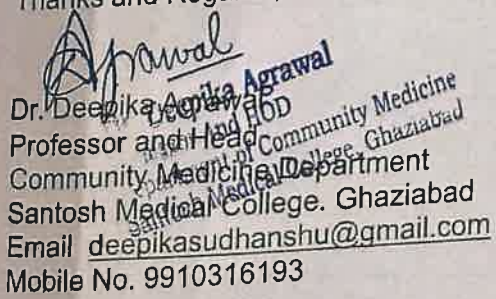 Thanks and
Agrawal
Dr. Deepika Agrawal
Professor and Head
Community Medicine Department
Santosh Medical College. Ghaziabad
Email deepikasudhanshu@gmail.com
Mobile No. 9910316193
Deepika Agrawal
HOD
Department of Community Medicine
Santosh Medical College, Ghaziabad